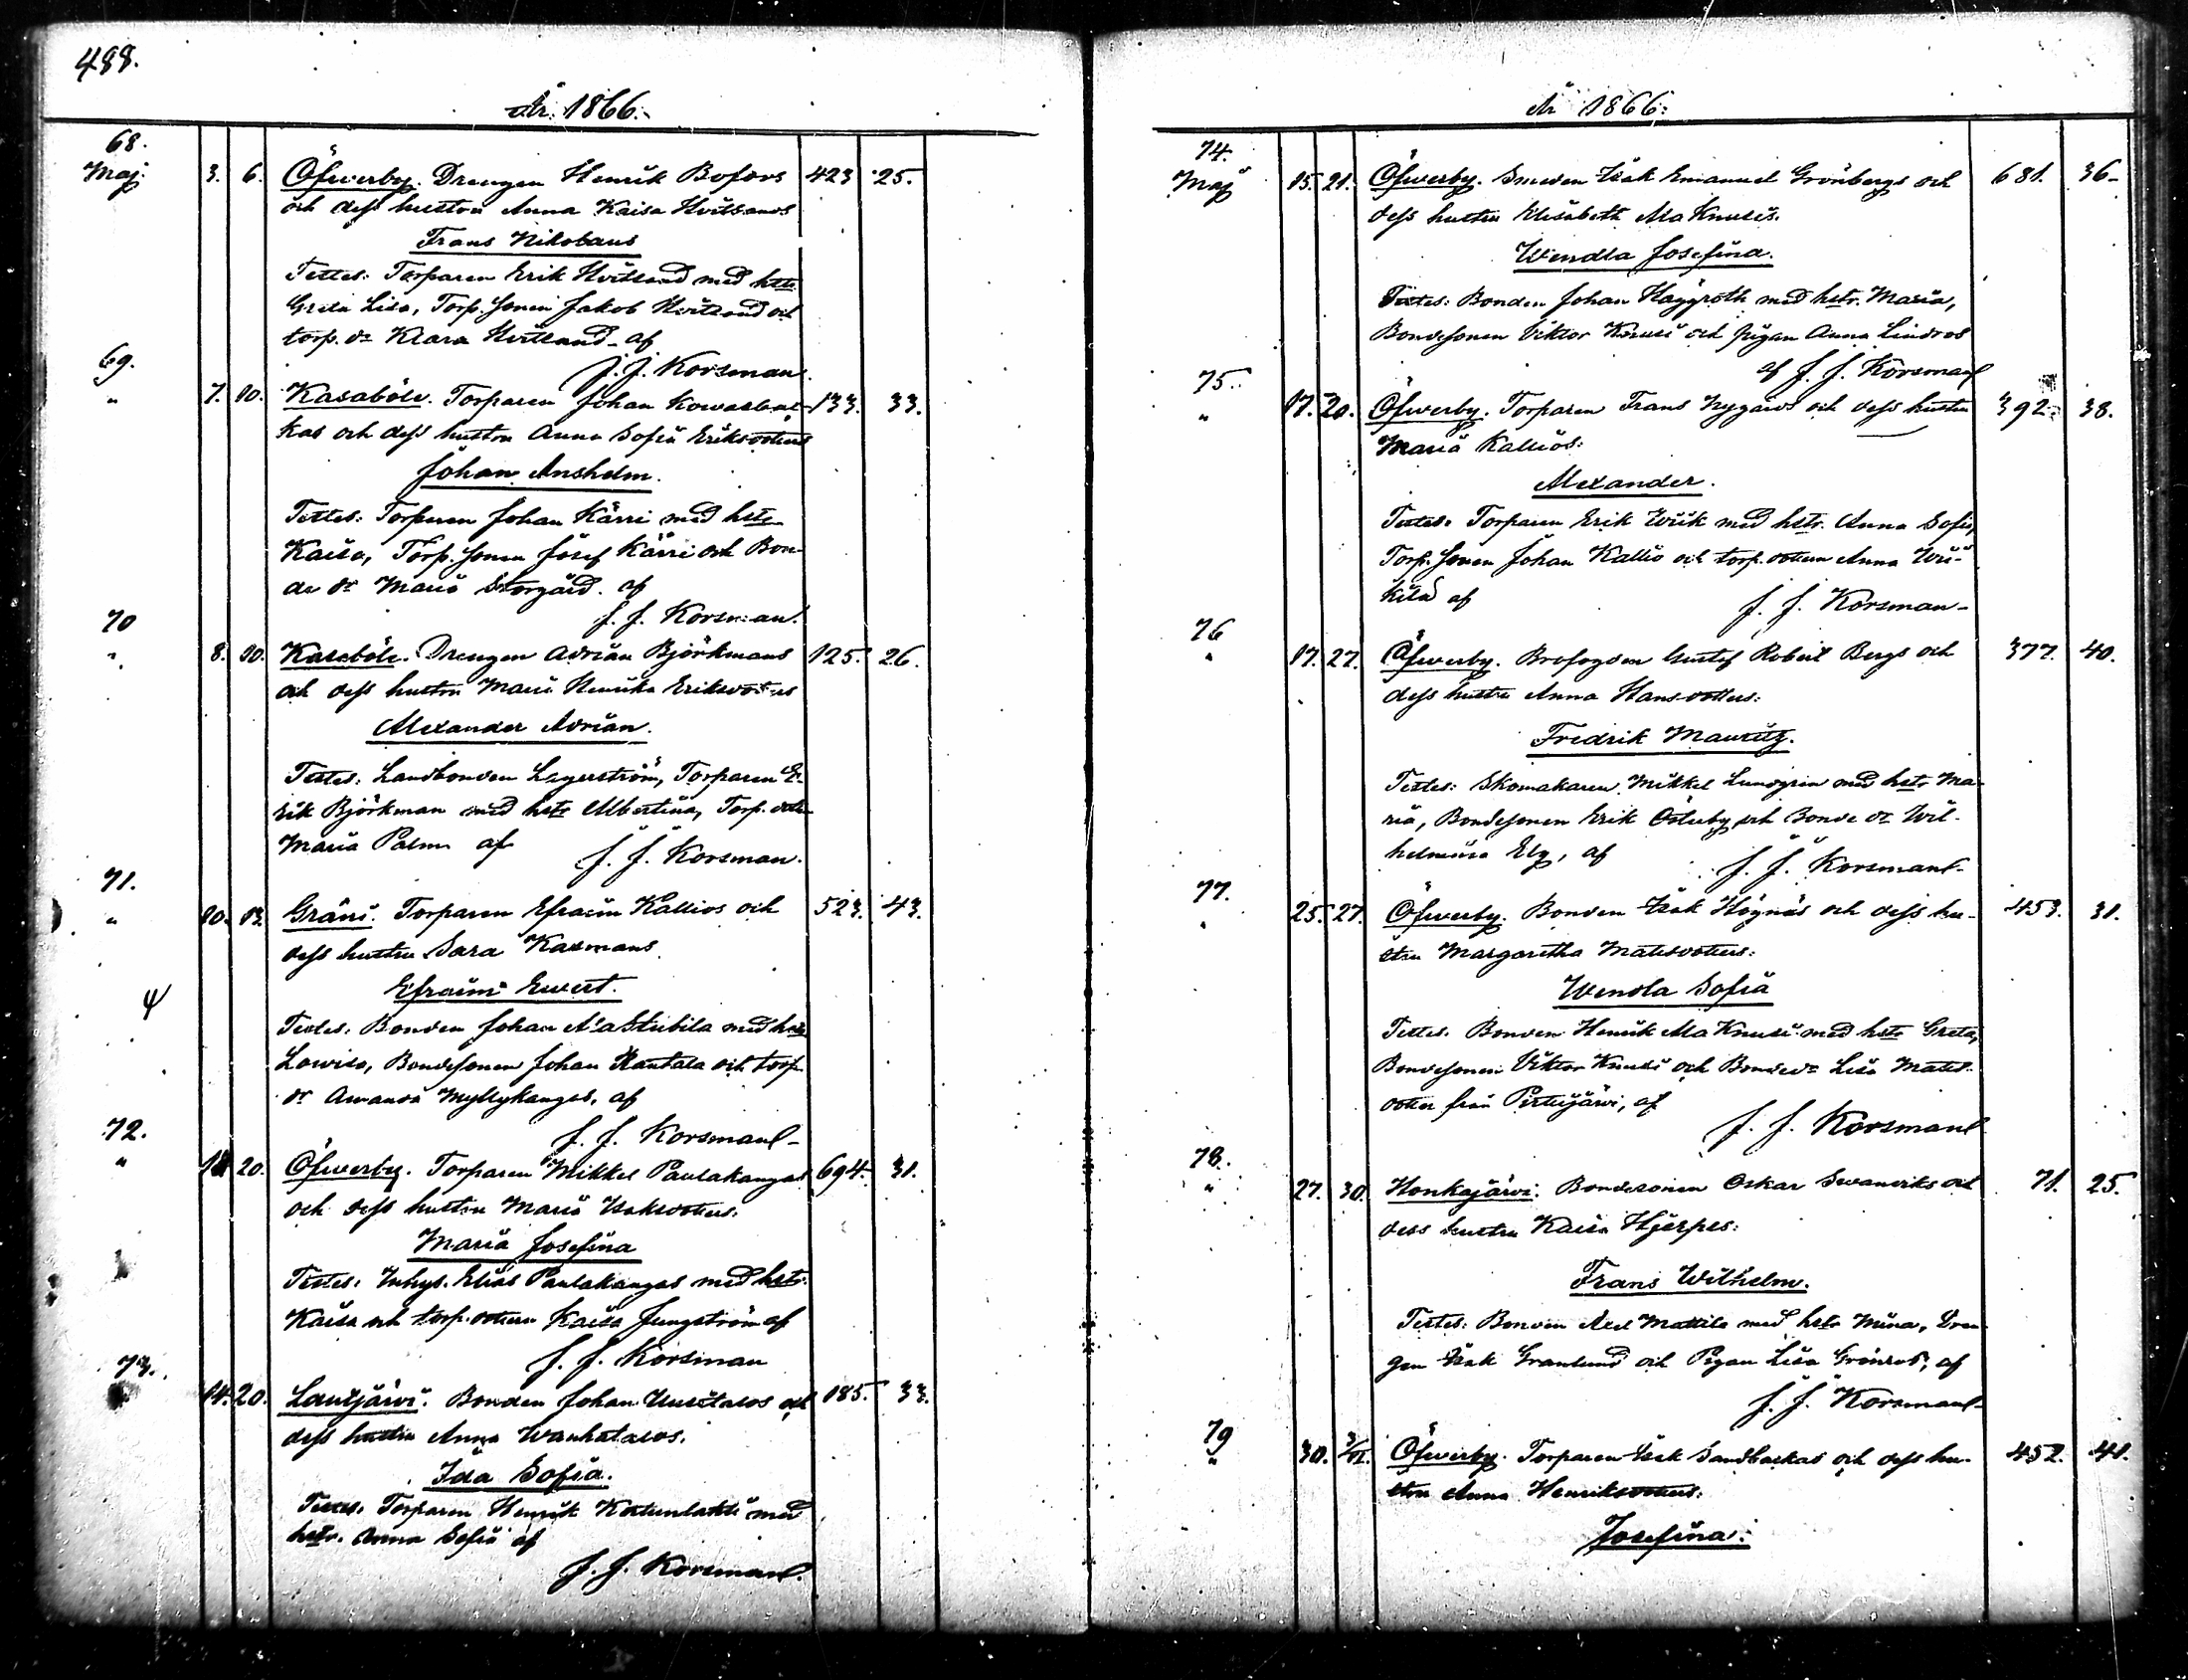 488.
År 1866.
68.
Maj. 3. 6. Öfwerby. Drengen Henrik Bofors 423 25.
och dess hustru Anna Kaisa Hvitsands
Frans Nikolaus
Testes: Torparen Erik Hvitsand med hstr
Greta Lisa, Torp. sonen Jakob Hvitsand och
torp. dr Klara Hvitsand af
J. J. Korsman.
69.
" 7. 10. Kasaböle. Torparen Johan 133. 33.
kas och dess hustru Anna Sofia Eriksdotters
Johan Anshelm.
Testes: Torparen Johan Kärri med hstr
Kaisa, Torp. sonen Josef Kärri och Bon-
de dr Maria Storgård. af
J. J. Korsman.
70
" 8. 10. Kasaböle. Drengen Adrian Björkmans 125. 26.
och dess hustru Maria Henrika Eriksdotters
Alexander Adrian.
Testes: Landbonden Lagerström, Torparen E-
rik Björkman med hstr Albertina, Torp. dottern
Maria Palm af J. J. Korsman.
71.
" 10. 13. Träsk. Torparen Efraim Kallios och 523. 43.
dess hustru Sara Kaxmans
Efraim Evert.
Testes: Bonden Johan Ala med hstr
Lowisa, Bondesonen Johan Rantala och torp
dr Amanda Myllykangas, af
J. J. Korsman
72.
" 20. Öfwerby. Torparen Mikkel Paulakangas 694. 31.
och dess hustru Maria Isaksdotters.
Maria Josefina
Testes: Inhys. Elias Paulakangas med hstr.
Kaisa och torp. dottern Kaisa Ljungström af
J. J. Korsman
73.
14. 20. Lautjärvi. Bonden Johan Uusitalos och 185. 33.
dess hustru Anna Wanhatalos.
Ida Sofia.
Testes: Torparen Henrik Kortenlahti med
hstr. Anna Sofia af
J. J. Korsman.
År 1866:
74.
Maj 15. 21. Öfwerby. Smeden Isak Emanuel Grönbergs och 681. 36.
dess hustru Elisabeth Ala Knuses.
Wendla Josefina.
Testes: Bonden Johan Häggroth med hstr. Maria,
Bondesonen Viktor Knusi och pigan Anna Lindros
af J. J. Korsman
75.
" 17. 20. Öfwerby. Torparen Frans Nygårds och dess hustru 392. 38.
Maria Kallios:
Alexander.
Testes: Torparen Erik Wiik med hstr. Anna Sofia,
Torp. sonen Johan Kallio och torp. dottern Anna Wii-
kilä af J. J. Korsman
76
" 17. 27. Öfwerby. Brofogden Gustaf Robert Bergs och 377. 40.
dess hustru Anna Hansdotters:
Fredrik Mauritz.
Testes: Skomakaren Mikkel Lundgren med hstr Ma-
ria, Bondesonen Erik Österby och Bonde dr Wil-
helmina Elg, af J. J. Korsman
77.
" 25. 27. Öfwerby. Bonden Isak Högnäs och dess hu- 453. 31.
stru Margaretha Matsdotters:
Wendla Sofia
Testes. Bonden Henrik Ala Knusi med hstr Greta,
Bondesonen Viktor Knusi och Bonde dr Lisa Mats-
dotter från Perttijärvi, af
J. J. Korsman
78.
" 27. 30. Honkajärvi. Bondesonen Oskar Swanviks och 71. 25.
dess hustru Kaisa Hjerpes:
Frans Wilhelm.
Testes: Bonden Axel Mattila med hstr Mina, Dren
gen Isak Granlund och Pigan Lisa Grönros, af
J. J. Korsman
79
" 30. 3/VI. Öfwerby. Torparen Isak Sandbackas och dess hu- 452. 41.
stru Anna Henriksdotters:
Josefina: